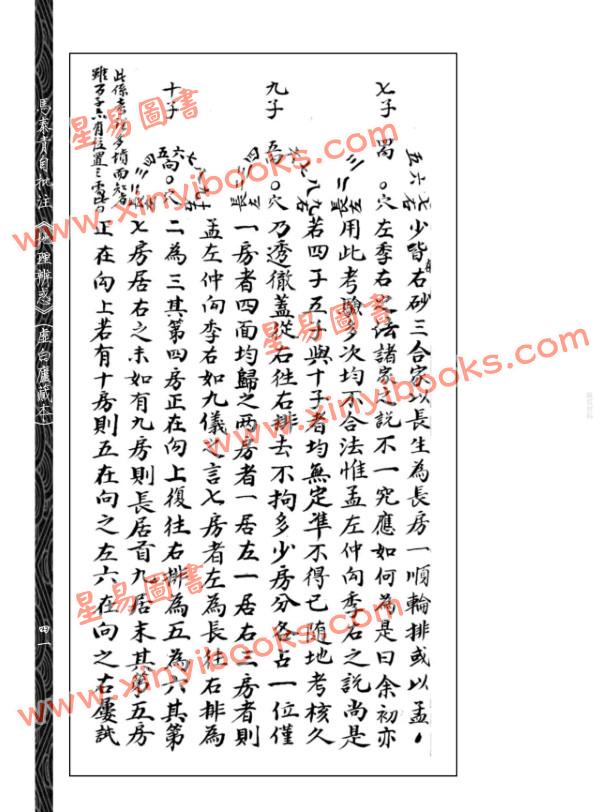 少皆右砂三合家以長生為長房一順輪排或以孟
穴左季右之法諸家之說不一究應如何為是曰余初亦
用此考驗多次均不合法惟孟左仲向季右之說尚是
若四子五子與十子者均無定準不得已随地考核久
乃透徹蓋從右徃右排去不拘多少房分各占一位僅
一房者四面均歸之两房者一居左一居右三房者則
孟左仲向季右如九儀之言七房者左為長徃右排為
二為三其第四房正在向上復徃右排為五為六其第
七房居右之末如有九房則長居首九居末其第五房
正在向上若有十房則五在向之左六在向之右屢試
七子
九子
十子
馬泰青自批注《地理辨惑》(虛白廬藏本)
四一
星易圖書
www.xinyibooks.com
星易圖書
www.xinyibooks.com
星易圖書
www.xinyibooks.com